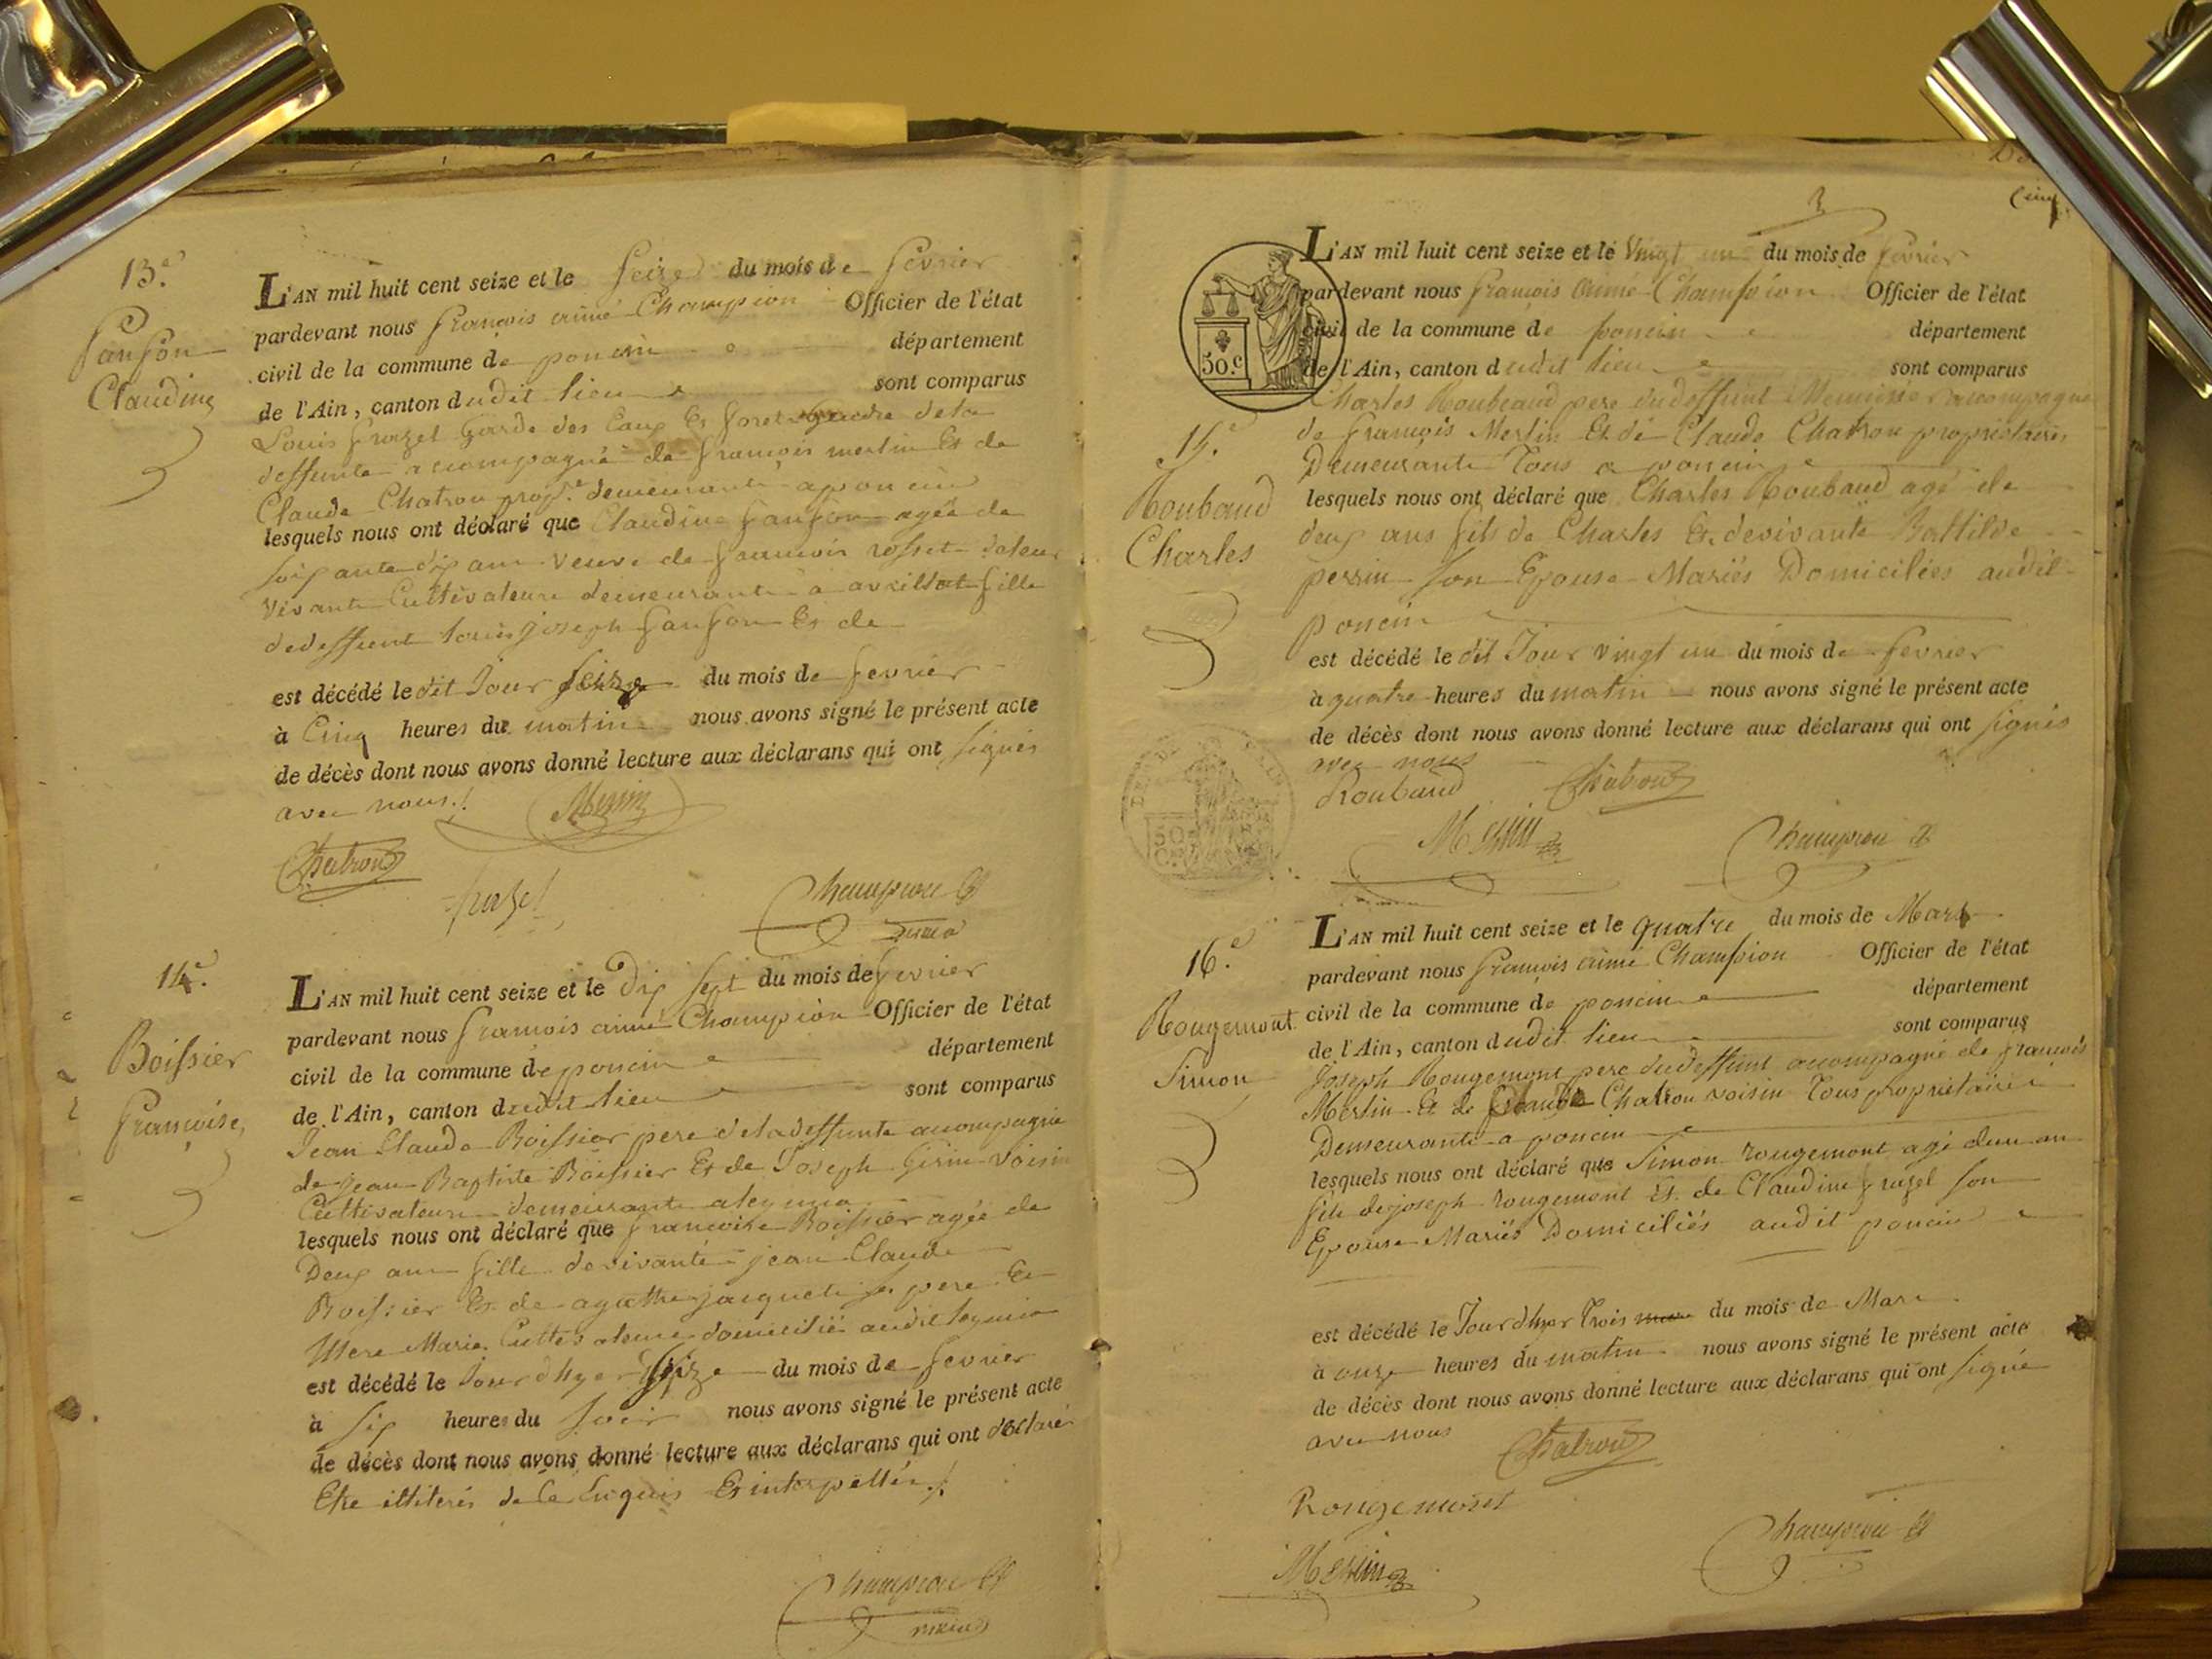 13.e
Sanson
Claudine
L'AN mil huit cent seize et le seize du mois de fevrier
pardevant nous françois aimé Champion Officier de l'état
civil de la commune de poncin département
de l'Ain, canton dudit lieu sont comparus
Louis frazel Garde des Eaux Et foret gendre de la
deffunte acompagné de françois merlin Et de
Claude Chatron prop.re demeurants a poncin
lesquels nous ont déclaré que Claudine Sanson agée de
soixante dix ans veuve de françois rosset de leur
vivant Cultivateurs demeurants à avrillat fille
de deffient Louis joseph Sanson Et de
est décédé le dit Jour seize du mois de fevrier
à Cinq heures du matin nous avons signé le présent acte
de décès dont nous avons donné lecture aux déclarans qui ont signés
avec nous./.
Merlin
Chatron
frazel
Champion
14.e
Boissier
françoise
L'AN mil huit cent seize et le Dix sept du mois de fevrier
pardevant nous françois aimé Champion Officier de l'état
civil de la commune de poncin département
de l'Ain, canton dudit lieu sont comparus
Jean Claude Boissier pere de la deffunte acompagné
de jean Baptiste Boissier Et de Joseph Girin voisin
Cultivateurs demeurants a leymia
lesquels nous ont déclaré que francoise Boissier agée de
Deux ans fille de vivante jean Claude
Boissier Et de agathe jacquet ses pere Et
Mere Mariés Cultivateurs domiciliés audit leymia
est décédé le Jour d'hyer Seize du mois de fevrier
à six heures du soir nous avons signé le présent acte
de décès dont nous avons donné lecture aux déclarans qui ont déclaré
Etre illiterés de Ce Enquis Et interpellés./.
Champion
maire
3
Cinq
50.c
L'AN mil huit cent seize et le Vingt un du mois de fevrier
pardevant nous françois aimé Champion Officier de l'état
civil de la commune de poncin département
de l'Ain, canton dudit lieu sont comparus
15.e
Roubaud
Charles
Charles Roubeaud pere du deffunt Menuisier acompagné
de françois Merlin Et de Claude Chatron propriétaires
Demeurants Tous a poncin
lesquels nous ont déclaré que Charles Roubaud agé de
deux ans fils de Charles Et de vivante Battilde
perrin son Epouse Mariés Domiciliés audit
poncin
est décédé le dit Jour vingt un du mois de fevrier
à quatre heures du matin nous avons signé le présent acte
de décès dont nous avons donné lecture aux déclarans qui ont signés
avec nous
Roubaud Chatron
Merlin Champion
50 C.
16.e
Rougemont
Simon
L'AN mil huit cent seize et le quatre du mois de Mars
pardevant nous françois aimé Champion Officier de l'état
civil de la commune de poncin département
de l'Ain, canton dudit lieu sont comparus
Joseph Rougemont pere du deffunt acompagné de françois
Merlin Et de Claude Chatron voisin Tous propriétaires
Demeurants a poncin
lesquels nous ont déclaré que Simon rougemont agé d'un an
fils de joseph rougemont Et de Claudine frazel son
Epouse Mariés Domiciliés audit poncin
est décédé le Jour d'hyer Trois du mois de Mars
à onze heures du matin nous avons signé le présent acte
de décès dont nous avons donné lecture aux déclarans qui ont signé
avec nous
Chatron
Rougemont
Champion
Merlin